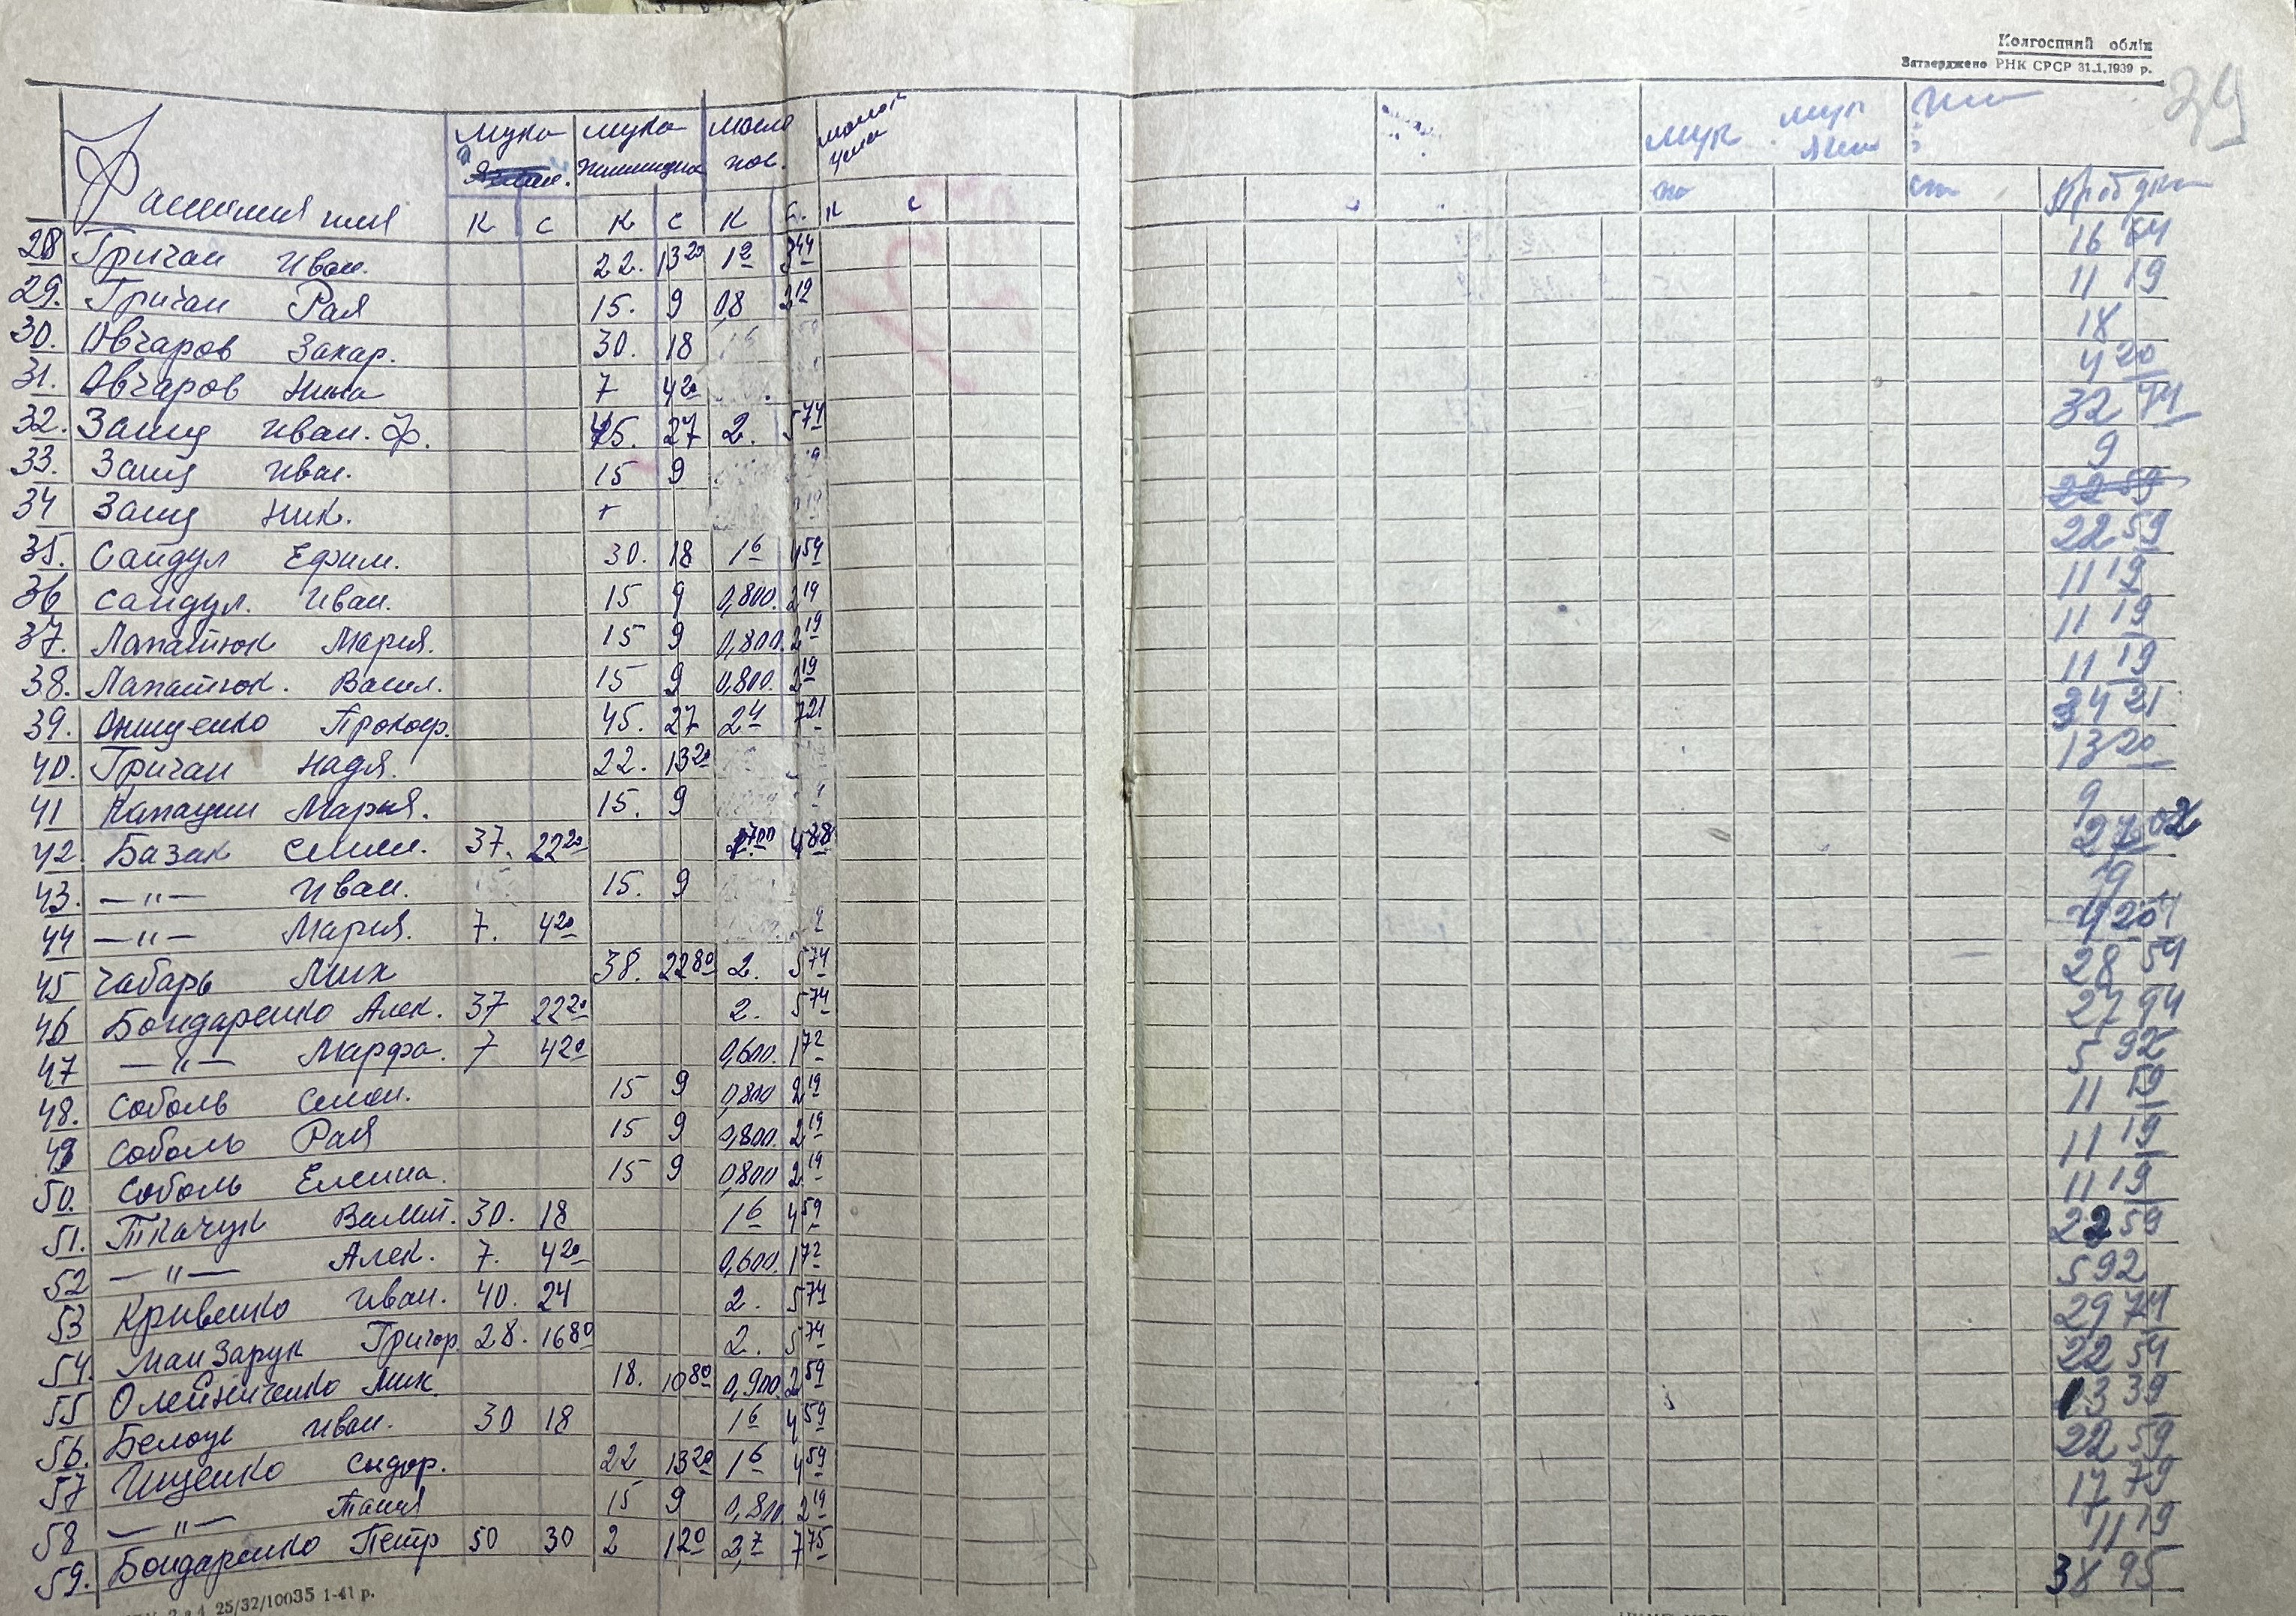 Колгоспний облік
Затверджено РНК СРСР 31.1.1939 р.
24
мука мука масло
пшеничная пос.
мук мук
Фамилия имя к с к с к с к с
28 Гричан Иван. 22. 13 20 1 2 3 44 16 64
29. Гричан Рая 15. 9 0,8 2 19 11 19
30. Овчаров Захар. 30. 18 18
31. Овчаров Нина 7 4 20 4 20
32. Заяц Иван. Ф. 45. 27 2. 5 74 32 74
33. Заяц Иван. 15 9 9
34 Заяц Ник. + 22 59
35. Сандул Ефим. 30. 18 1 6 4 59 22 59
36 Сандул. Иван. 15 9 0,800. 2 19 11 19
37. Лапатюк Мария. 15 9 0,800. 2 19 11 19
38. Лапатюк. Васил. 15 9 0,800. 2 19 11 19
39. Онищенко Прокоф. 45. 27 2 4 7 21 34 21
40. Гричан Надя. 22. 13 20 13 20
41 Мария. 15. 9 9
42. Базак Семен. 37. 22 20 1,700 4 88 27 02
43. —"— Иван. 15. 9 9
44 —"— Мария. 7. 4 20 4 20
45 Чабарь Мих 38. 22 80 2. 5 74 28 54
46 Бондаренко Алек. 37 22 20 2. 5 74 27 94
47 —"— Марфа. 7 4 20 0,600. 1 72 5 92
48. Соболь Семен. 15 9 0,800 2 19 11 19
49 Соболь Рая 15 9 0,800. 2 19 11 19
50. Соболь Елена. 15 9 0,800 2 19 11 19
51. Ткачук 30. 18 1 6 4 59 22 59
52 —"— Алек. 7. 4 20 0,600. 1 72 5 92
53 Кривенко Иван. 40. 24 2. 5 74 29 74
54. Манзарук Григор. 28. 16 80 2. 5 74 22 54
55 Олейниченко Мих. 18. 10 80 0,900. 2 59 13 39
56. Белоус Иван. 30 18 1 6 4 59 22 59
57 Ищенко Сидор. 22 13 20 1 6 4 59 17 79
58 —"— Таня 15 9 0,800. 2 19 11 19
59. Бондаренко Петр 50 30 2 1 20 2,7 7 75 38 95
25/32/10035 1-41 р.